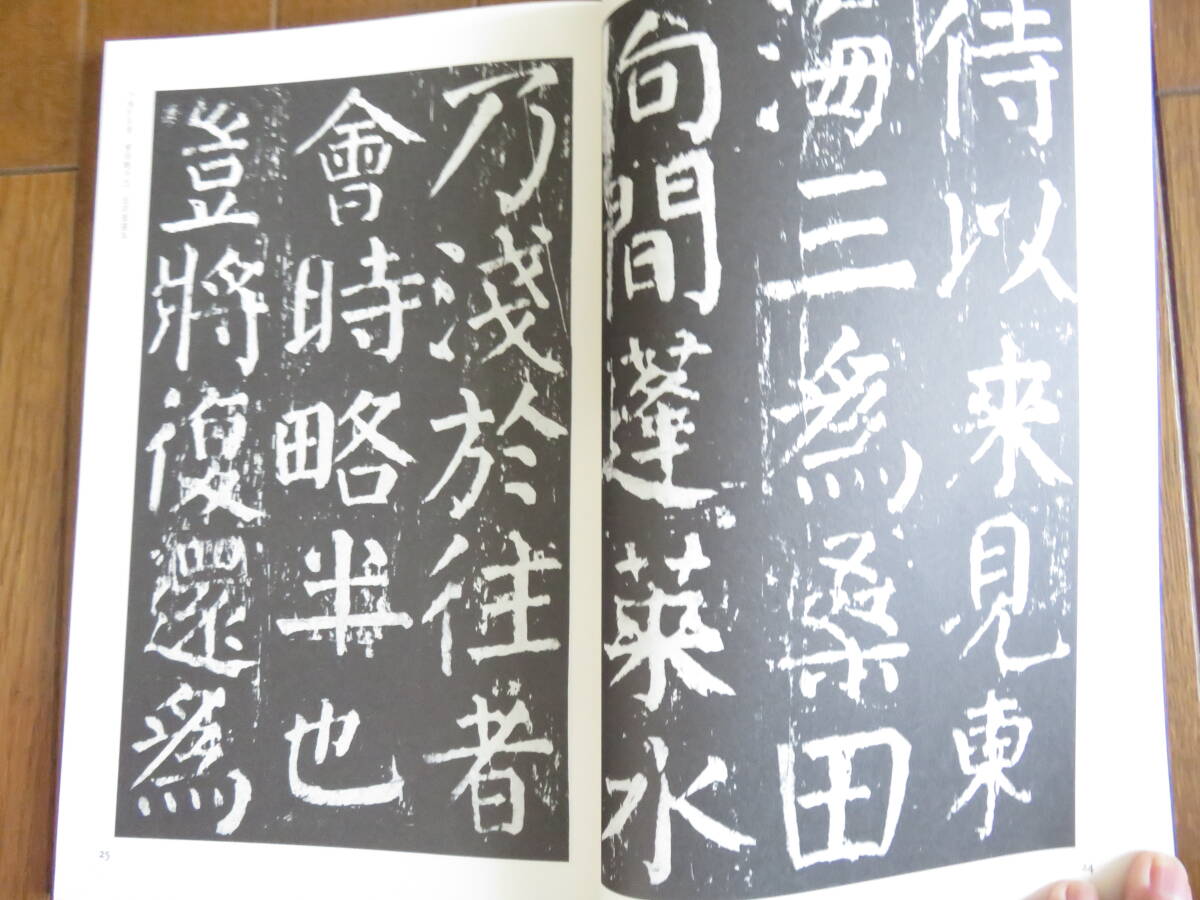 侍以来見東
海三為桑田
向間蓬萊水
乃淺於往者
會時略半也
豈將復還為
24
25